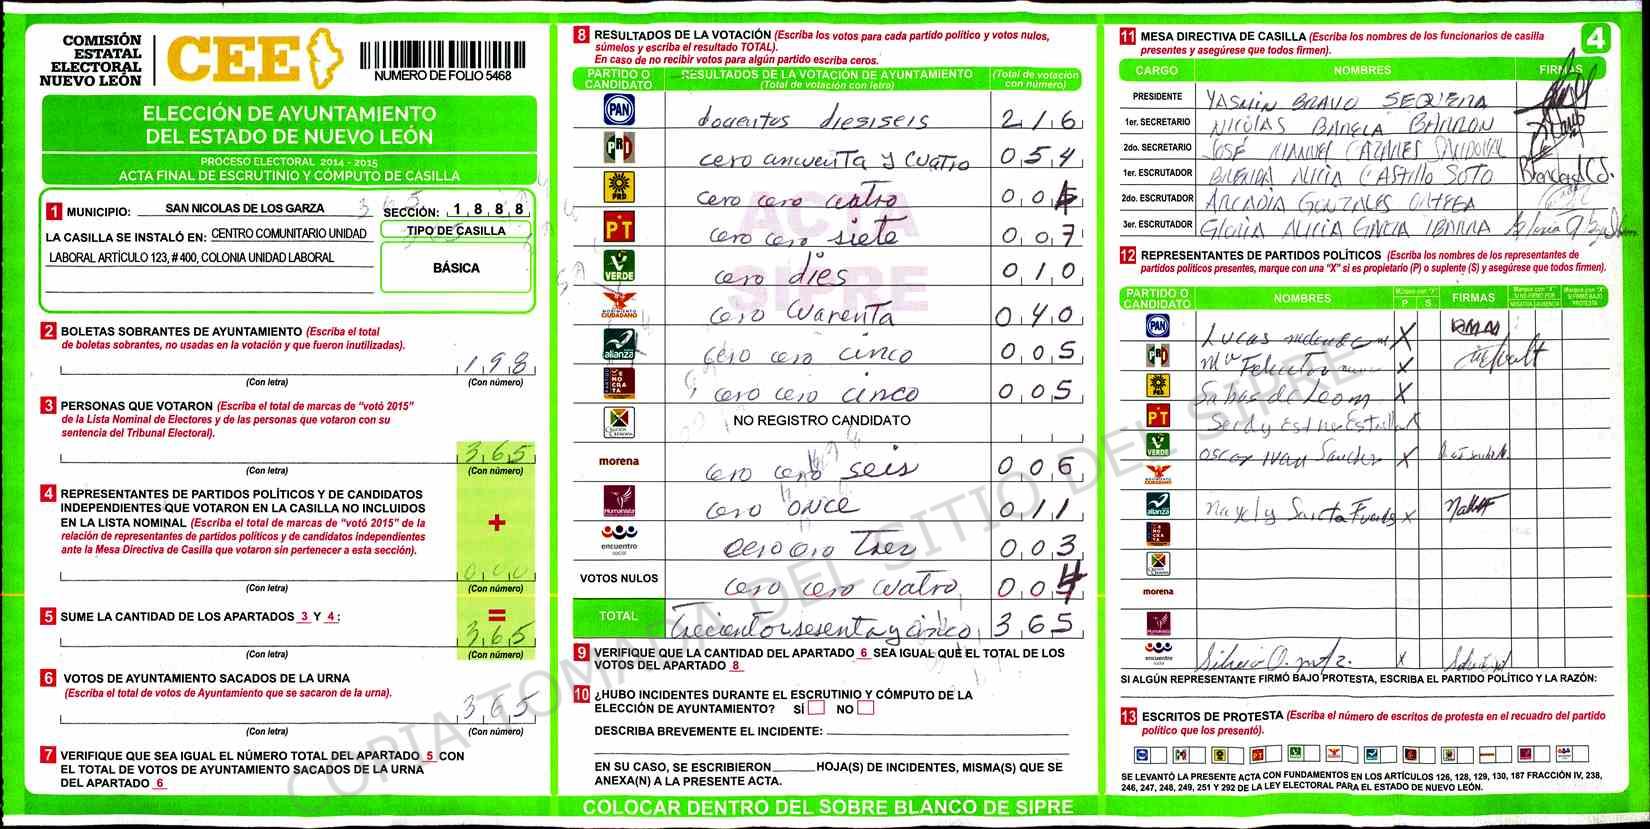 COMISIÓN
ESTATAL
ELECTORAL
NUEVO LEÓN
CEE
NUMERO DE FOLIO 5468
ELECCIÓN DE AYUNTAMIENTO
DEL ESTADO DE NUEVO LEÓN
PROCESO ELECTORAL 2014 - 2015
ACTA FINAL DE ESCRUTINIO Y CÓMPUTO DE CASILLA
1 MUNICIPIO: SAN NICOLAS DE LOS GARZA
SECCIÓN: 1 8 8 8
LA CASILLA SE INSTALÓ EN: CENTRO COMUNITARIO UNIDAD
LABORAL ARTÍCULO 123, # 400, COLONIA UNIDAD LABORAL
TIPO DE CASILLA
BÁSICA
2 BOLETAS SOBRANTES DE AYUNTAMIENTO (Escriba el total
de boletas sobrantes, no usadas en la votación y que fueron inutilizadas).
198
(Con letra) (Con número)
3 PERSONAS QUE VOTARON (Escriba el total de marcas de "votó 2015"
de la Lista Nominal de Electores y de las personas que votaron con su
sentencia del Tribunal Electoral).
365
(Con letra) (Con número)
4 REPRESENTANTES DE PARTIDOS POLÍTICOS Y DE CANDIDATOS
INDEPENDIENTES QUE VOTARON EN LA CASILLA NO INCLUIDOS
EN LA LISTA NOMINAL (Escriba el total de marcas de "votó 2015" de la
relación de representantes de partidos políticos y de candidatos independientes
ante la Mesa Directiva de Casilla que votaron sin pertenecer a esta sección).
+
000
(Con letra) (Con número)
5 SUME LA CANTIDAD DE LOS APARTADOS 3 Y 4:
=
365
(Con letra) (Con número)
6 VOTOS DE AYUNTAMIENTO SACADOS DE LA URNA
(Escriba el total de votos de Ayuntamiento que se sacaron de la urna).
365
(Con letra) (Con número)
7 VERIFIQUE QUE SEA IGUAL EL NÚMERO TOTAL DEL APARTADO 5 CON
EL TOTAL DE VOTOS DE AYUNTAMIENTO SACADOS DE LA URNA
DEL APARTADO 6
8 RESULTADOS DE LA VOTACIÓN (Escriba los votos para cada partido político y votos nulos,
súmelos y escriba el resultado TOTAL).
En caso de no recibir votos para algún partido escriba ceros.
PARTIDO O CANDIDATO RESULTADOS DE LA VOTACIÓN DE AYUNTAMIENTO (Total de votación con letra) (Total de votación con número)
PAN docentos diesiseis 216
PRD cero cincuenta y cuatro 054
PRD cero cero cuatro 004
PT cero cero siete 007
VERDE cero dies 010
MOVIMIENTO CIUDADANO cero cuarenta 040
alianza cero cero cinco 005
DEMOCRATA cero cero cinco 005
NO REGISTRO CANDIDATO
morena cero cero seis 006
Humanista cero once 011
encuentro social cero cero tres 003
VOTOS NULOS cero cero cuatro 004
TOTAL Trecientos sesenta y cinco 365
ACTA
SIPRE
9 VERIFIQUE QUE LA CANTIDAD DEL APARTADO 6 SEA IGUAL QUE EL TOTAL DE LOS
VOTOS DEL APARTADO 8
10 ¿HUBO INCIDENTES DURANTE EL ESCRUTINIO Y CÓMPUTO DE LA
ELECCIÓN DE AYUNTAMIENTO? SÍ NO
DESCRIBA BREVEMENTE EL INCIDENTE:
EN SU CASO, SE ESCRIBIERON HOJA(S) DE INCIDENTES, MISMA(S) QUE SE
ANEXA(N) A LA PRESENTE ACTA.
COLOCAR DENTRO DEL SOBRE BLANCO DE SIPRE
11 MESA DIRECTIVA DE CASILLA (Escriba los nombres de los funcionarios de casilla
presentes y asegúrese que todos firmen).
4
CARGO NOMBRES FIRMAS
PRESIDENTE YASMIN BRAVO SEQUERA
1er. SECRETARIO NICOLAS BANELA BARRON
2do. SECRETARIO JOSÉ MANUEL CAZARES SANDOVAL
1er. ESCRUTADOR BRENDA ALICIA CASTILLO SOTO Brenda A C S.
2do. ESCRUTADOR ARCADIA GONZALES
3er. ESCRUTADOR GLORIA ALICIA GARCIA IBARRA
12 REPRESENTANTES DE PARTIDOS POLÍTICOS (Escriba los nombres de los representantes de
partidos políticos presentes, marque con una "X" si es propietario (P) o suplente (S) y asegúrese que todos firmen).
PARTIDO O CANDIDATO NOMBRES P S FIRMAS
PAN Lucas X
PRI Ma X
PRD Sabas de Leon X
PT X
VERDE Oscar Ivan Sanchez X
MOVIMIENTO CIUDADANO
alianza Nayely X
DEMOCRATA
morena
Humanista
encuentro social Silvia O. mtz. X
SI ALGÚN REPRESENTANTE FIRMÓ BAJO PROTESTA, ESCRIBA EL PARTIDO POLÍTICO Y LA RAZÓN:
13 ESCRITOS DE PROTESTA (Escriba el número de escritos de protesta en el recuadro del partido
político que los presentó).
SE LEVANTÓ LA PRESENTE ACTA CON FUNDAMENTOS EN LOS ARTÍCULOS 126, 128, 129, 130, 187 FRACCIÓN IV, 238,
246, 247, 248, 249, 251 Y 292 DE LA LEY ELECTORAL PARA EL ESTADO DE NUEVO LEÓN.
COPIA TOMADA DEL SITIO DEL SIPRE